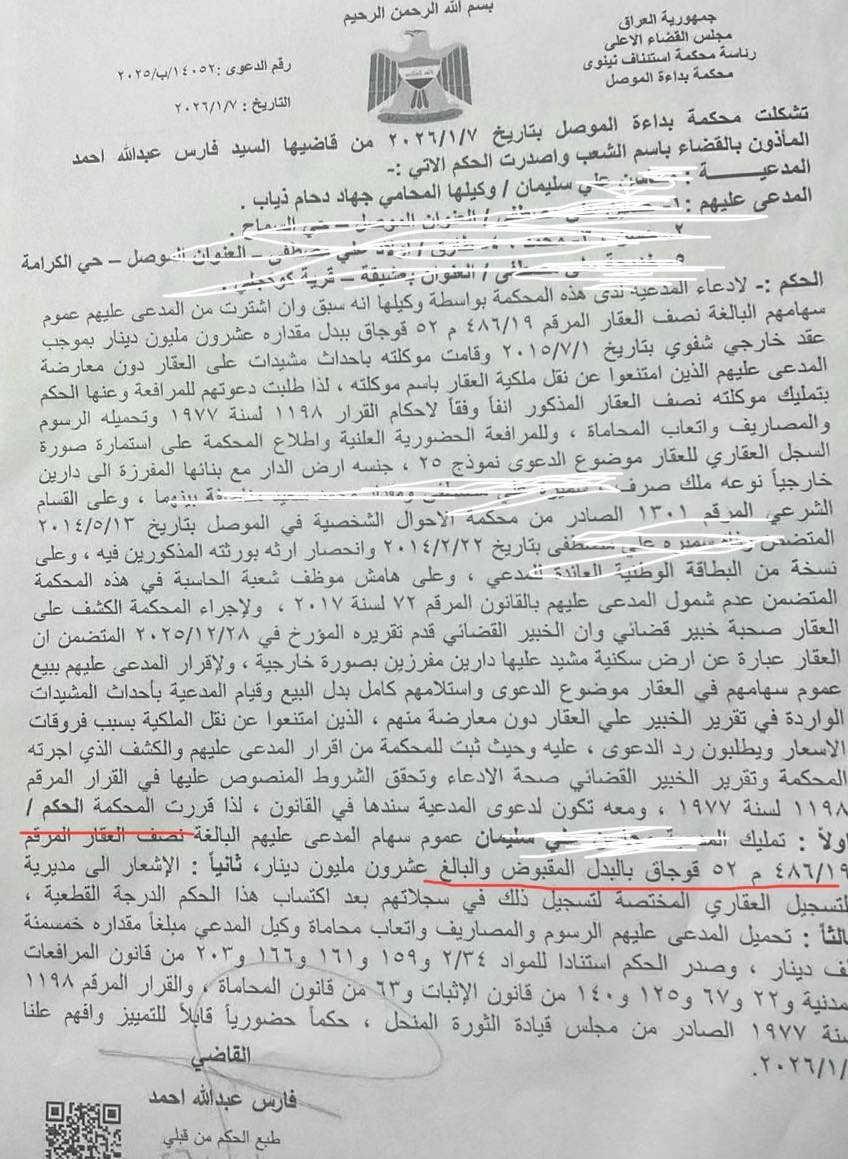 بسم الله الرحمن الرحيم
جمهورية العراق
مجلس القضاء الاعلى
رئاسة محكمة استئناف نينوى
محكمة بداءة الموصل
رقم الدعوى :١٤٠٥٢/ب/٢٠٢٥
التاريخ : ٢٠٢٦/١/٧
تشكلت محكمة بداءة الموصل بتاريخ ٢٠٢٦/١/٧ من قاضيها السيد فارس عبدالله احمد
المأذون بالقضاء باسم الشعب واصدرت الحكم الاتي :-
المدعيــــــة : علي سليمان / وكيلها المحامي جهاد دحام ذياب .
المدعى عليهم : ١- / العنوان الموصل – حي السماح .
٢- اولاد علي مصطفى – العنوان الموصل – حي الكرامة
/ العنوان بعشيقة – قرية
الحكم :- لادعاء المدعية لدى هذه المحكمة بواسطة وكيلها انه سبق وان اشترت من المدعى عليهم عموم
سهامهم البالغة نصف العقار المرقم ٤٨٦/١٩ م ٥٢ قوجاق ببدل مقداره عشرون مليون دينار بموجب
عقد خارجي شفوي بتاريخ ٢٠١٥/٧/١ وقامت موكلته باحداث مشيدات على العقار دون معارضة
المدعى عليهم الذين امتنعوا عن نقل ملكية العقار باسم موكلته ، لذا طلبت دعوتهم للمرافعة وعنها الحكم
بتمليك موكلته نصف العقار المذكور انفاً وفقاً لاحكام القرار ١١٩٨ لسنة ١٩٧٧ وتحميله الرسوم
والمصاريف واتعاب المحاماة ، وللمرافعة الحضورية العلنية واطلاع المحكمة على استمارة صورة
السجل العقاري للعقار موضوع الدعوى نموذج ٢٥ ، جنسه ارض الدار مع بنائها المفرزة الى دارين
خارجياً نوعه ملك صرف ، بينهما ، وعلى القسام
الشرعي المرقم ١٣٠١ الصادر من محكمة الاحوال الشخصية في الموصل بتاريخ ٢٠١٤/٥/١٣
المتضمن سميره علي مصطفى بتاريخ ٢٠١٤/٢/٢٢ وانحصار ارثه بورثته المذكورين فيه ، وعلى
نسخة من البطاقة الوطنية العائدة للمدعي ، وعلى هامش موظف شعبة الحاسبة في هذه المحكمة
المتضمن عدم شمول المدعى عليهم بالقانون المرقم ٧٢ لسنة ٢٠١٧ ، ولإجراء المحكمة الكشف على
العقار صحبة خبير قضائي وان الخبير القضائي قدم تقريره المؤرخ في ٢٠٢٥/١٢/٢٨ المتضمن ان
العقار عبارة عن ارض سكنية مشيد عليها دارين مفرزين بصورة خارجية ، ولإقرار المدعى عليهم ببيع
عموم سهامهم في العقار موضوع الدعوى واستلامهم كامل بدل البيع وقيام المدعية بأحداث المشيدات
الواردة في تقرير الخبير علي العقار دون معارضة منهم ، الذين امتنعوا عن نقل الملكية بسبب فروقات
الاسعار ويطلبون رد الدعوى ، عليه وحيث ثبت للمحكمة من اقرار المدعى عليهم والكشف الذي اجرته
المحكمة وتقرير الخبير القضائي صحة الادعاء وتحقق الشروط المنصوص عليها في القرار المرقم
١١٩٨ لسنة ١٩٧٧ ، ومعه تكون لدعوى المدعية سندها في القانون ، لذا قررت المحكمة الحكم /
اولاً : تمليك علي سليمان عموم سهام المدعى عليهم البالغة نصف العقار المرقم
٤٨٦/١٩ م ٥٢ قوجاق بالبدل المقبوض والبالغ عشرون مليون دينار، ثانياً : الإشعار الى مديرية
التسجيل العقاري المختصة لتسجيل ذلك في سجلاتهم بعد اكتساب هذا الحكم الدرجة القطعية ،
ثالثاً : تحميل المدعى عليهم الرسوم والمصاريف واتعاب محاماة وكيل المدعي مبلغاً مقداره خمسمئة
لف دينار ، وصدر الحكم استنادا للمواد ٢/٣٤ و١٥٩ و١٦١ و١٦٦ و٢٠٣ من قانون المرافعات
مدنية و٢٢ و٦٧ و١٢٥ و١٤٠ من قانون الإثبات و٦٣ من قانون المحاماة ، والقرار المرقم ١١٩٨
سنة ١٩٧٧ الصادر من مجلس قيادة الثورة المنحل ، حكماً حضورياً قابلاً للتمييز وافهم علنا
٢٠٢٦/١/.
القاضي
فارس عبدالله احمد
طبع الحكم من قبلي